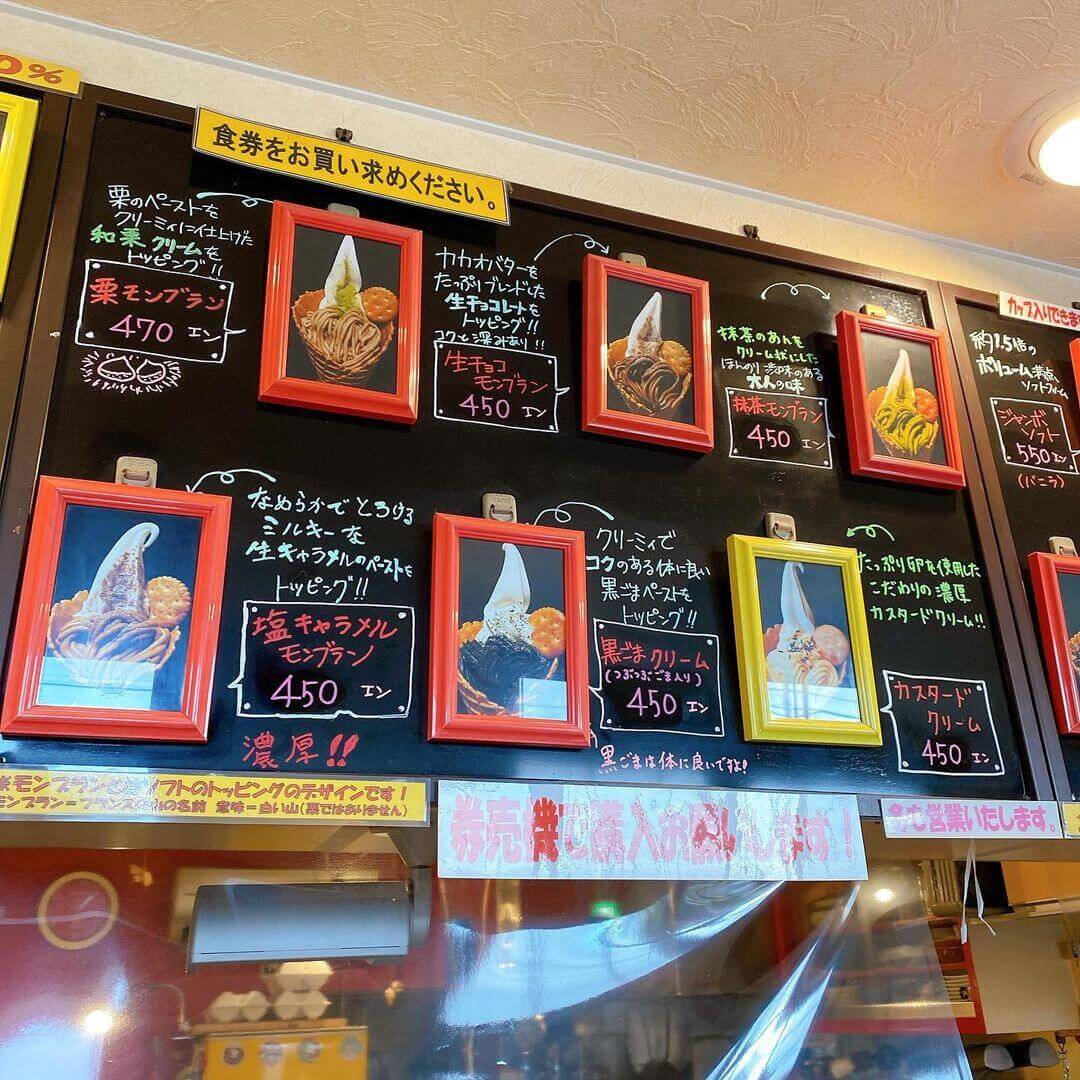 0%
食券をお買い求めください。
栗のペーストを
クリーミィに仕上げた
和栗クリームを
トッピング!!
栗モンブラン
470 エン
カカオバターを
たっぷりブレンドした
生チョコレートを
トッピング!!
コクと深みあり!!
生チョコ
モンブラン
450 エン
抹茶のあんを
クリーム状にした
ほんのり渋味のある
大人の味
抹茶モンブラン
450 エン
カップ入りできま
約1.5倍の
ボリューム満点
ソフトクリーム
ジャンボ
ソフト
550エン
(バニラ)
なめらかで とろける
ミルキーな
生キャラメルのペーストを
トッピング!!
塩キャラメル
モンブラン
450 エン
濃厚!!
クリーミィで
コクのある体に良い
黒ごまペーストを
トッピング!!
黒ごまクリーム
(つぶつぶごま入り)
450 エン
黒ごまは体に良いですよ!
たっぷり卵を使用した
こだわりの濃厚
カスタードクリーム!!
カスタード
クリーム
450 エン
モンブラン
ソフトのトッピングのデザインです!
モンブラン=フランス
の名前 意味=白い山(栗ではありません)
券売機で購入お願いします!
営業いたします。